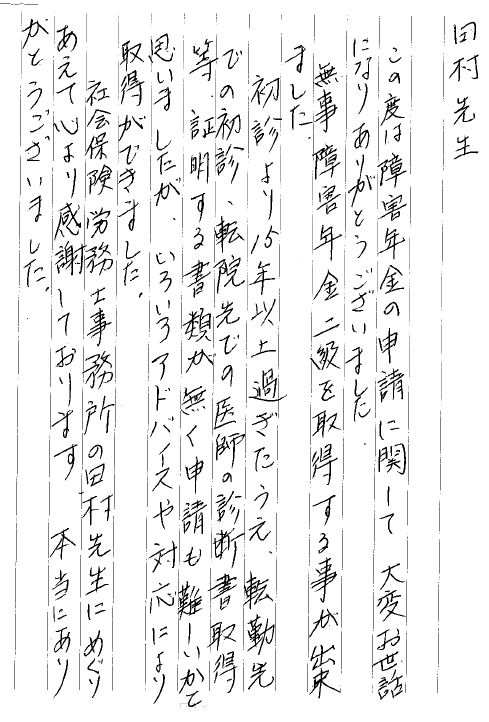 田村先生
この度は障害年金の申請に関して大変お世話
になりありがとうございました.
無事、障害年金二級を取得する事が出来
ました.
初診より15年以上過ぎたうえ、転勤先
での初診、転院先での医師の診断書取得
等、証明する書類が無く申請も難しいかと
思いましたが、いろいろアドバイスや対応により
取得ができました.
社会保険労務士事務所の田村先生にめぐり
あえて心より感謝しております 本当にあり
がとうございました.